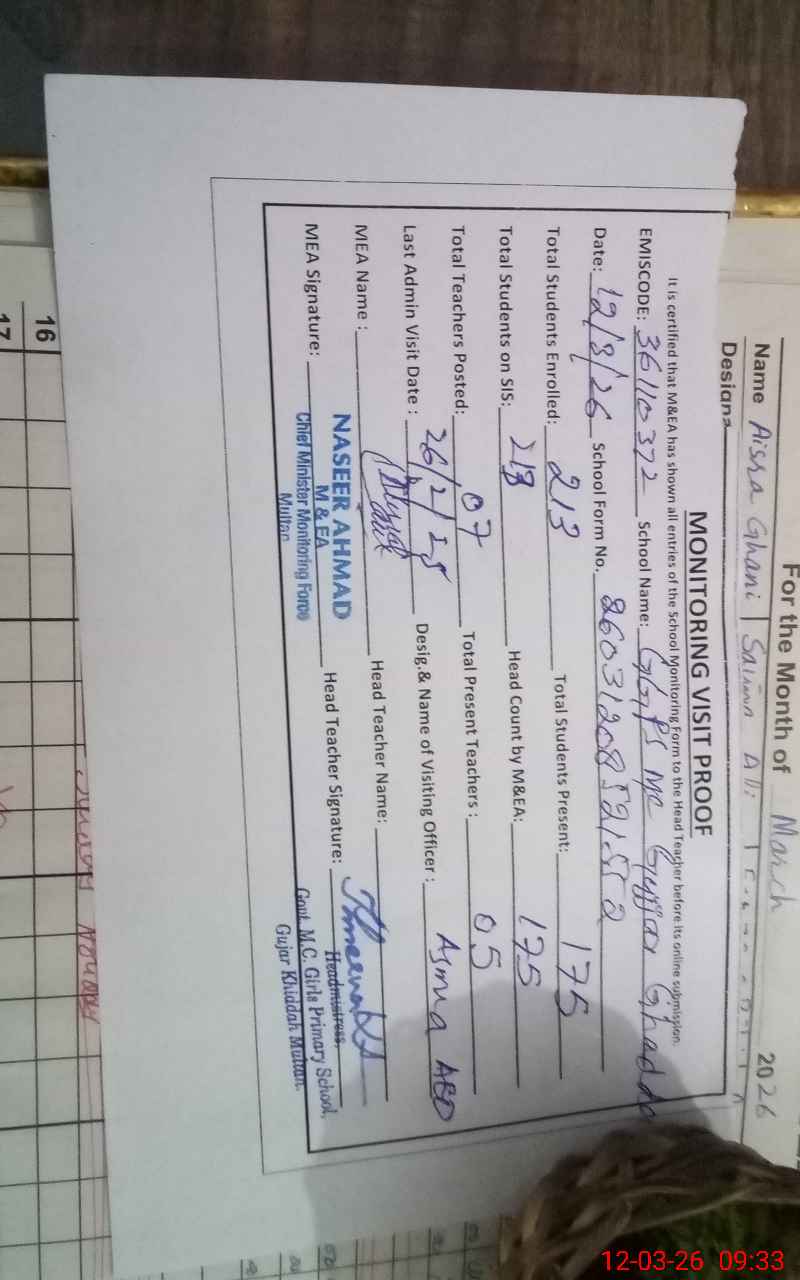 For the Month of March 2026
Name Aisra Ghani Saima Ali
Designa
MONITORING VISIT PROOF
It is certified that M&EA has shown all entries of the School Monitoring Form to the Head Teacher before its online submission.
EMISCODE: 36110372 School Name: GGPS MC Gujjar Khadda
Date: 12/3/26 School Form No.
Total Students Enrolled: 213 Total Students Present: 175
Total Students on SIS: 213 Head Count by M&EA: 175
Total Teachers Posted: 07 Total Present Teachers: 05
Last Admin Visit Date : 26/2/25 Desig.& Name of Visiting Officer : Asma AEO
MEA Name : Head Teacher Name:
MEA Signature: Head Teacher Signature:
NASEER AHMAD
M & EA
Chief Minister Monitoring Force
Multan
Headmistress,
Govt. M.C. Girls Primary School,
Gujar Khaddah Multan.
16
17
12-03-26 09:33